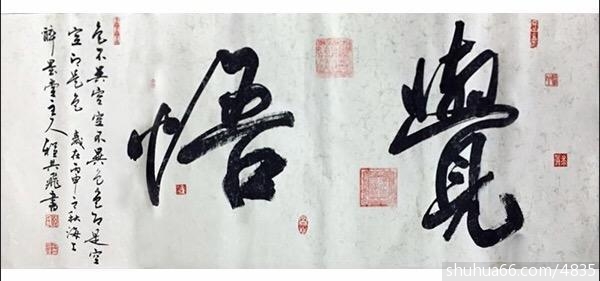 覺悟
色不異空空不異色色即是空
空即是色 歲在丙申之秋海上
醉墨堂主人 書
shuhua66.com/4835